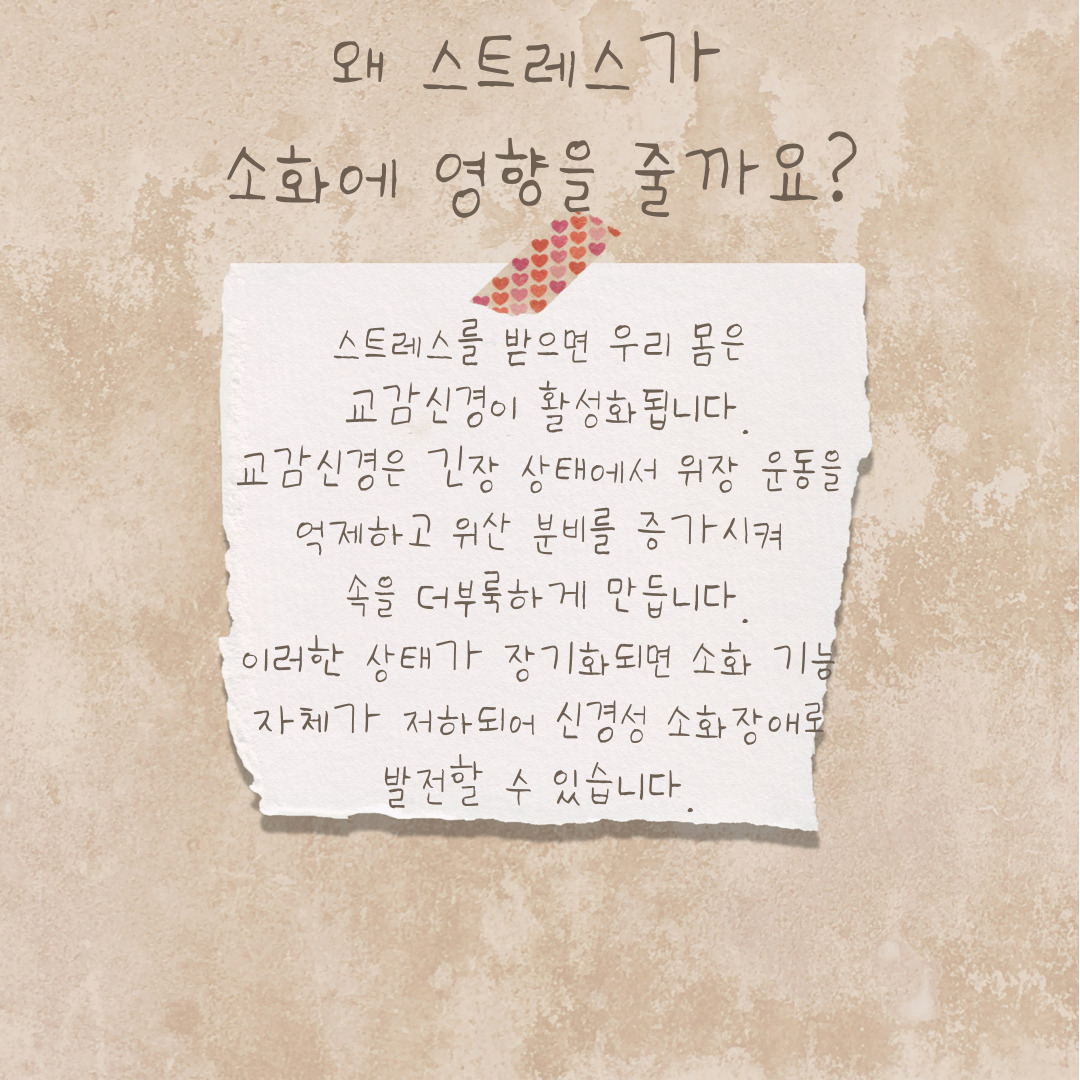 왜 스트레스가
소화에 영향을 줄까요?
스트레스를 받으면 우리 몸은
교감신경이 활성화됩니다.
교감신경은 긴장 상태에서 위장 운동을
억제하고 위산 분비를 증가시켜
속을 더부룩하게 만듭니다.
이러한 상태가 장기화되면 소화 기능
자체가 저하되어 신경성 소화장애로
발전할 수 있습니다.